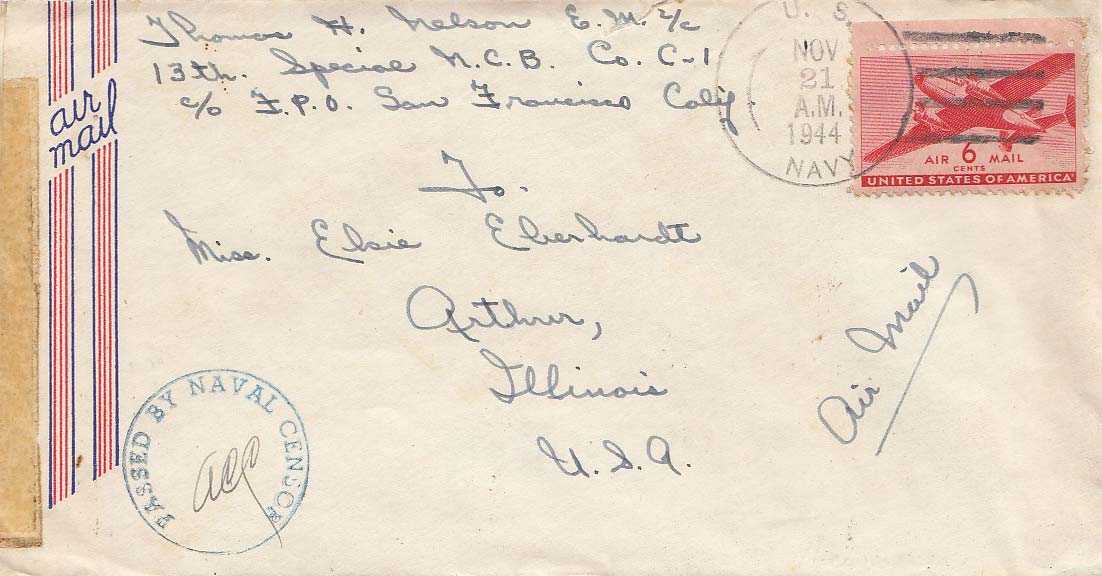 Thomas H. Nelson E.M. 2/c
13th. Special N.C.B. Co. C-1
c/o F.P.O. San Francisco Calif.
air mail
U. S.
NOV
21
A.M.
1944
NAVY
AIR 6 MAIL
CENTS
UNITED STATES OF AMERICA
To.
Miss. Elsie Eberhardt
Arthur,
Illinois
U.S.A.
Air Mail
PASSED BY NAVAL CENSOR